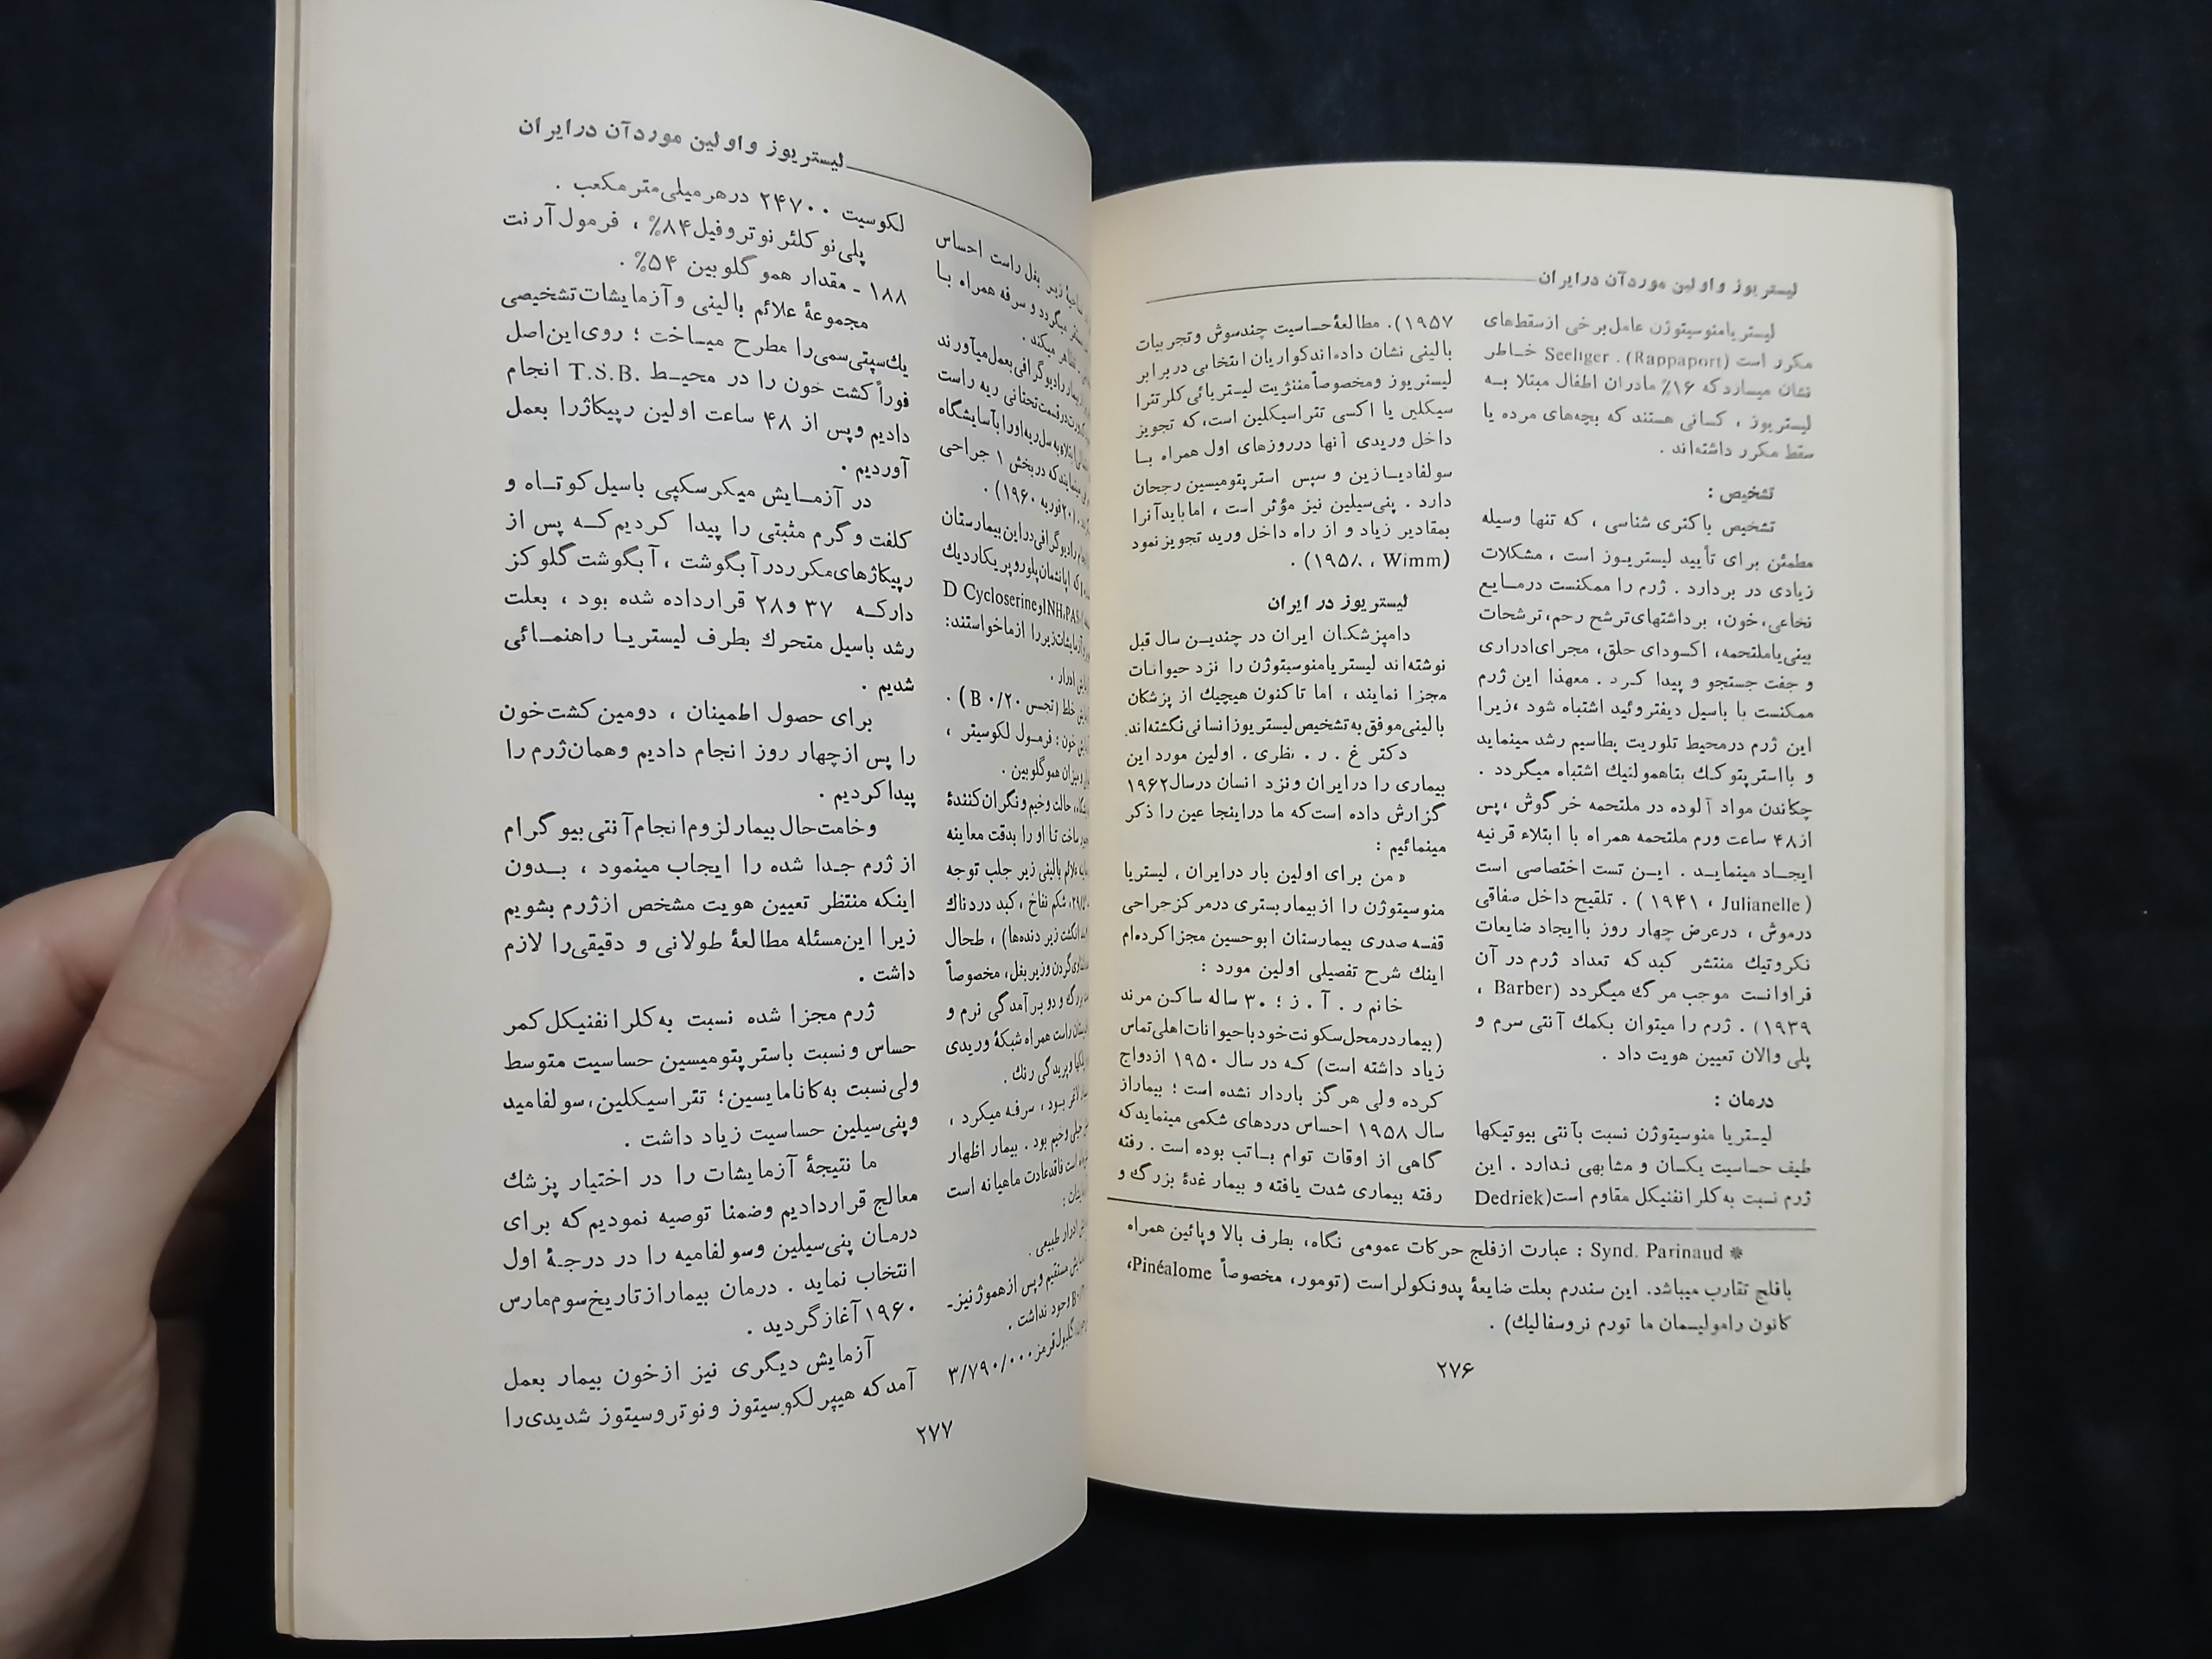 لیستریوز و اولین مورد آن در ایران
لیستریامنوسیتوژن عامل برخی از سقط‌های
مکرر است (Rappaport) . Seeliger خاطر
نشان میسازد که ۱۶٪ مادران اطفال مبتلا به
لیستریوز ، کسانی هستند که بچه‌های مرده یا
سقط مکرر داشته‌اند .
تشخیص :
تشخیص باکتری شناسی ، که تنها وسیله
مطمئن برای تأیید لیستریوز است ، مشکلات
زیادی در بردارد . ژرم را ممکنست در مایع
نخاعی، خون، برداشتهای ترشح رحم، ترشحات
بینی یا ملتحمه، اکسودای حلق، مجرای ادراری
و جفت جستجو و پیدا کرد . معهذا این ژرم
ممکنست با باسیل دیفتروئید اشتباه شود ، زیرا
این ژرم در محیط تلوریت بطاسیم رشد مینماید
و با استرپتوکك بتاهمولتیك اشتباه میگردد .
چکاندن مواد آلوده در ملتحمه خرگوش ، پس
از ۴۸ ساعت ورم ملتحمه همراه با ابتلاء قرنیه
ایجاد مینماید . این تست اختصاصی است
( Julianelle ، ۱۹۴۱ ) . تلقیح داخل صفاقی
در موش ، در عرض چهار روز با ایجاد ضایعات
نکروتیك منتشر کبد که تعداد ژرم در آن
فراوانست موجب مرگ میگردد (Barber ،
۱۹۳۹) . ژرم را میتوان بکمك آنتی سرم و
پلی والان تعیین هویت داد .
درمان :
لیستریا منوسیتوژن نسبت بآنتی بیوتیکها
طیف حساسیت یکسان و مشابهی ندارد . این
ژرم نسبت به کلرانفنیکل مقاوم است (Dedriek
۱۹۵۷). مطالعهٔ حساسیت چند سوش و تجربیات
بالینی نشان داده‌اند کواریان انتخابی در برابر
لیستریوز و مخصوصاً مننژیت لیستریائی کلرتترا
سیکلین یا اکسی تتراسیکلین است، که تجویز
داخل وریدی آنها در روزهای اول همراه با
سولفادیازین و سپس استرپتومیسین رجحان
دارد . پنی‌سیلین نیز مؤثر است ، اما باید آنرا
بمقادیر زیاد و از راه داخل ورید تجویز نمود
(Wimm ، ۱۹۵۸) .
لیستریوز در ایران
دامپزشکان ایران در چندین سال قبل
نوشته‌اند لیستریامنوسیتوژن را نزد حیوانات
مجزا نمایند ، اما تاکنون هیچیك از پزشکان
بالینی موفق به تشخیص لیستریوز انسانی نگشته‌اند.
دکتر غ . ر . نظری . اولین مورد این
بیماری را در ایران و نزد انسان در سال ۱۹۶۲
گزارش داده است که ما در اینجا عین را ذکر
مینمائیم :
« من برای اولین بار در ایران ، لیستریا
منوسیتوژن را از بیمار بستری در مرکز جراحی
قفسه صدری بیمارستان ابوحسین مجزا کرده‌ام
اینك شرح تفصیلی اولین مورد :
خانم ر . آ . ز ؛ ۳۰ ساله ساکن مرند
(بیمار در محل سکونت خود با حیوانات اهلی تماس
زیاد داشته است) که در سال ۱۹۵۰ ازدواج
کرده ولی هرگز باردار نشده است ؛ بیمار از
سال ۱۹۵۸ احساس دردهای شکمی مینماید که
گاهی از اوقات توام با تب بوده است . رفته
رفته بیماری شدت یافته و بیمار غدهٔ بزرگ و
* Synd. Parinaud : عبارت از فلج حرکات عمومی نگاه، بطرف بالا و پائین همراه
بافلج تقارب میباشد. این سندرم بعلت ضایعهٔ پدونکولر است (تومور، مخصوصاً Pinéalome،
کانون رامولیسمان ما تورم نروسفالیك) .
۲۷۶
لیستریوز و اولین مورد آن در ایران
زیر بغل راست احساس
میگردد و سرفه همراه با
میکند .
رادیوگرافی بعمل میآورند
در قسمت تحتانی ریه راست
به سل ریه او را بآسایشگاه
که در بخش ۱ جراحی
فوریه ۱۹۶۰) .
رادیوگرافی در این بیمارستان
پلوروپریکاردیك
D Cycloserine و INH،PAS
آزمایشات زیر را از ما خواستند:
ادرار .
خلط (تجسس B ۰/۲۰) .
خون : فرمول لکوسیتر ،
میزان هموگلوبین .
حالت وخیم و نگران کنندهٔ
ساخت تا او را بدقت معاینه
علائم بالینی زیر جلب توجه
شکم نفاخ ، کبد دردناك
انگشت زیر دنده‌ها) ، طحال
گردن و زیر بغل، مخصوصاً
و دو برآمدگی نرم و
راست همراه شبکهٔ وریدی
و پریدگی رنك .
لاغر بود ، سرفه میکرد ،
خیلی وخیم بود . بیمار اظهار
است فاقد عادت ماهیانه است
ادرار طبیعی .
مستقیم و پس از هموژنیز-
وجود نداشت .
گلبول قرمز ۳/۷۹۰/۰۰۰
لکوسیت ۲۴۷۰۰ در هر میلی‌متر مکعب .
پلی‌نوکلئر نوتروفیل ۸۴٪ ، فرمول آرنت
۱۸۸ ـ مقدار هموگلوبین ۵۴٪ .
مجموعهٔ علائم بالینی و آزمایشات تشخیصی
یك سپتی‌سمی را مطرح میساخت ؛ روی این اصل
فوراً کشت خون را در محیط .T.S.B انجام
دادیم و پس از ۴۸ ساعت اولین رپیکاژ را بعمل
آوردیم .
در آزمایش میکرسکپی باسیل کوتاه و
کلفت و گرم مثبتی را پیدا کردیم که پس از
رپیکاژهای مکرر در آبگوشت ، آبگوشت گلوکز
دار که ۳۷ و ۲۸ قرار داده شده بود ، بعلت
رشد باسیل متحرك بطرف لیستریا راهنمائی
شدیم .
برای حصول اطمینان ، دومین کشت خون
را پس از چهار روز انجام دادیم و همان ژرم را
پیدا کردیم .
وخامت حال بیمار لزوم انجام آنتی بیوگرام
از ژرم جدا شده را ایجاب مینمود ، بدون
اینکه منتظر تعیین هویت مشخص از ژرم بشویم
زیرا این مسئله مطالعهٔ طولانی و دقیقی را لازم
داشت .
ژرم مجزا شده نسبت به کلرانفنیکل کمر
حساس و نسبت باسترپتومیسین حساسیت متوسط
ولی نسبت به کانامایسین؛ تتراسیکلین، سولفامید
وپنی‌سیلین حساسیت زیاد داشت .
ما نتیجهٔ آزمایشات را در اختیار پزشك
معالج قرار دادیم و ضمنا توصیه نمودیم که برای
درمان پنی‌سیلین و سولفامیه را در درجهٔ اول
انتخاب نماید . درمان بیمار از تاریخ سوم مارس
۱۹۶۰ آغاز گردید .
آزمایش دیگری نیز از خون بیمار بعمل
آمد که هیپرلکوسیتوز و نوتروسیتوز شدیدی را
۲۷۷